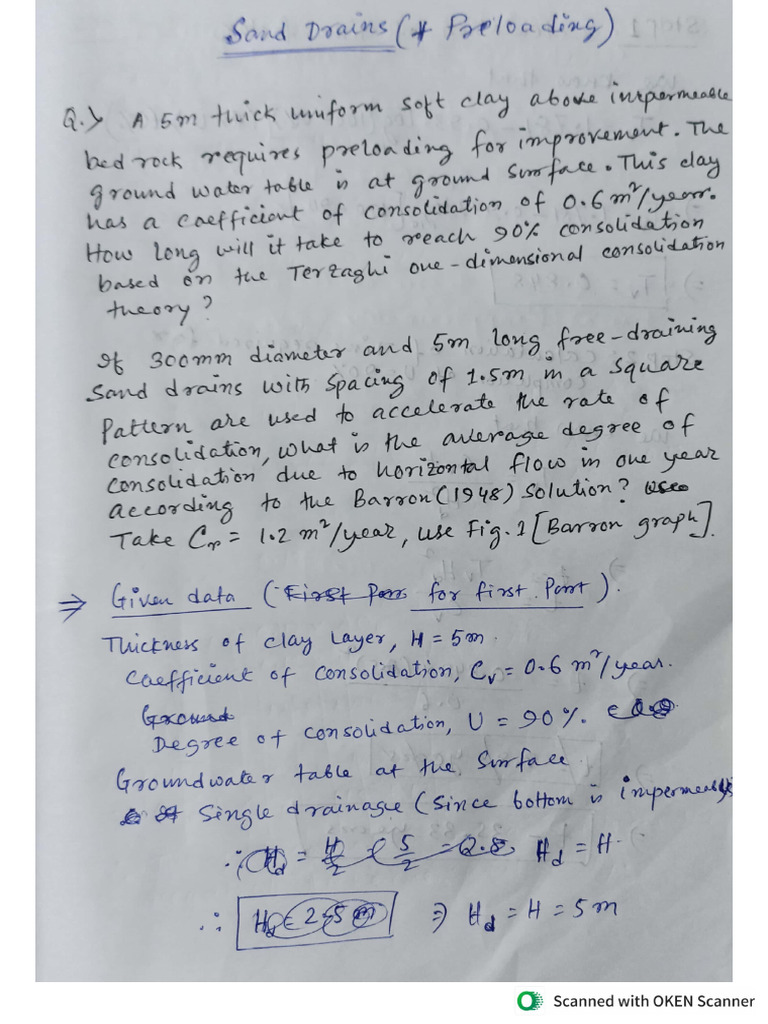 Sand Drains (# Preloading)
Q.> A 5m thick uniform soft clay above impermeable
bed rock requires preloading for improvement. The
ground water table is at ground surface. This clay
has a coefficient of consolidation of 0.6 m²/year.
How long will it take to reach 90% consolidation
based on the Terzaghi one-dimensional consolidation
theory?
If 300mm diameter and 5m long free-draining
Sand drains with spacing of 1.5m in a square
Pattern are used to accelerate the rate of
consolidation, what is the average degree of
consolidation due to horizontal flow in one year
according to the Barron (1948) Solution?
Take Cr = 1.2 m²/year, use Fig. 1 [Barron graph].
⇒ Given data (First Part for first Part).
Thickness of clay Layer, H = 5m.
Coefficient of consolidation, Cv = 0.6 m²/year.
Ground
Degree of consolidation, U = 90%.
Groundwater table at the Surface.
Single drainage (Since bottom is impermeable
∴ Hd = H/2 = 5/2 = 2.5 Hd = H.
∴ Hd = 2.5 m ⇒ Hd = H = 5m
Scanned with OKEN Scanner